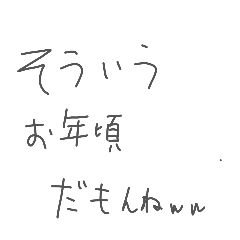 そういう
お年頃
だもんねww